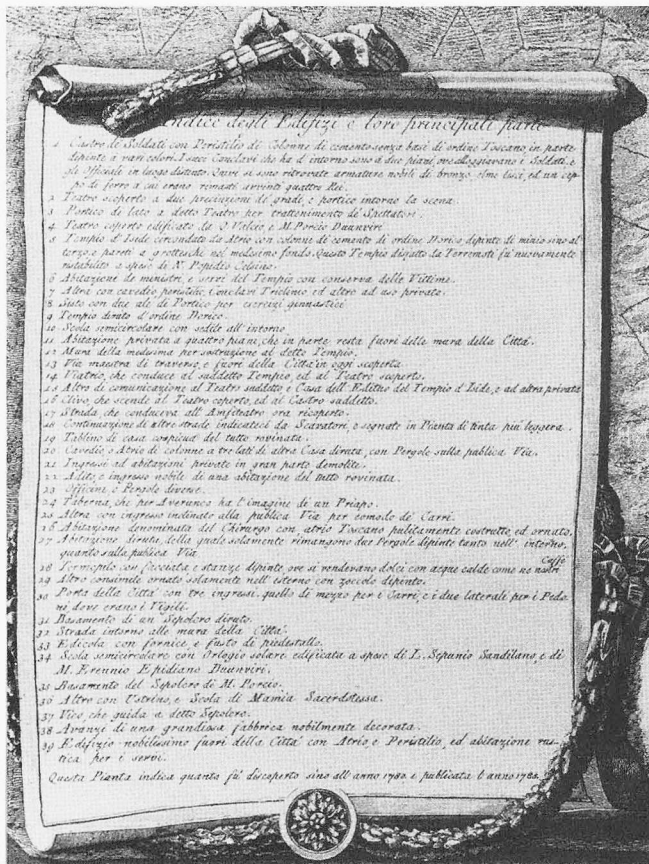 Indice degli Edifizi e loro principali parti
1 Castro di Soldati con Peristilio di Colonne di cemento senza basi di ordine Toscano, in parte
dipinte a vari colori. I sacri Conclavi che ha d'intorno sono a due piani, ove alloggiavano i Soldati, e
gli Officiali in luogo distinto. Quivi si sono ritrovate armature nobili di bronzo, elme lisci, ed un cep-
po di ferro a cui erano rimasti avvinti quattro Rei.
2 Teatro scoperto a due precinzioni di gradi, e portico intorno la scena.
3 Portico di lato a detto Teatro per trattenimento di Spettatori.
4 Teatro coperto edificato da Q. Valzio, e M. Porcio Duunviri
5 Tempio d'Iside circondato da Atrio con colonne di cemento di ordine Dorico, dipinte di minio sino al
terzo, e pareti a grotteschi nel medesimo fondo. Questo Tempio disfatto da Terremoti fù nuovamente
ristabilito a spese di N. Popidio Celsino.
6 Abitazione de ministri, e servi del Tempio con conserva delle Vittime.
7 Altra con cavedio peristilio, Conclavi Triclinio, ed altro ad uso privato.
8 Sisto con due ale di Portico per esercizi ginnastici
9 Tempio diruto d'ordine Dorico.
10 Scola semicircolare con sedile all'intorno
11 Abitazione privata a quattro piani, che in parte resta fuori delle mura della Città.
12 Mura della medesima per sostruzione al detto Tempio.
13 Via maestra di traverso, e fuori della Città in oggi scoperta
14 Viatrio, che conduce al suddetto Tempio, ed al Teatro scoperto.
15 Altro di comunicazione al Teatro suddetto e Casa dell'Edituo del Tempio d'Iside, e ad altra privata
16 Clivo, che scende al Teatro coperto, ed al Castro suddetto.
17 Strada, che conduceva all'Amfiteatro ora ricoperto.
18 Continuazione di altre strade indicateci da Scavatori, e segnate in Pianta di tinta più leggera.
19 Tablino di casa cospicua del tutto rovinata.
20 Cavedio, o Atrio di colonne a tre lati di altra Casa diruta, con Pergole sulla publica Via.
21 Ingressi ad abitazioni private in gran parte demolite.
22 Adito, e ingresso nobile di una abitazione del tutto rovinata.
23 Officine, o Pergole diverse.
24 Taberna, che per Averunco ha l'Imagine di un Priapo.
25 Altra con ingresso inclinato alla publica Via per comodo de' Carri.
26 Abitazione denominata del Chirurgo con atrio Toscano pulitamente costrutto, ed ornato.
27 Abitazione diruta, della quale solamente rimangono due Pergole dipinte tanto nell'interno,
quanto sulla publica Via
28 Termopolo con facciata, e stanze dipinte, ove si rendevano dolci con acque calde come ne nostri Caffè
29 Altro consimile ornato solamente nell'esterno con zoccolo dipinto.
30 Porta della Città con tre ingressi, quello di mezzo per i Carri, e i due laterale per i Pedo-
ni dove erano i Vigili.
31 Basamento di un Sepolcro diruto.
32 Strada intorno alle mura della Città.
33 Edicola con fornice, e fusto di piedestallo.
34 Scola semicircolare con Orlogio solare edificata a spese di L. Sepunio Sandilano, e di
M. Erennio Epidiano Duunviri.
35 Basamento del Sepolcro di M. Porcio.
36 Altro con Ustrino, e Scola di Mamia Sacerdotessa.
37 Vico, che guida a detto Sepolcro.
38 Avanzi di una grandiosa fabbrica nobilmente decorata.
39 Edifizio nobilissimo fuori della Città con Atrio, e Peristilio, ed abitazione rus-
tica per i servi.
Questa Pianta indica quanto fù discoperto sino all'anno 1780. e publicata l'anno 1788.